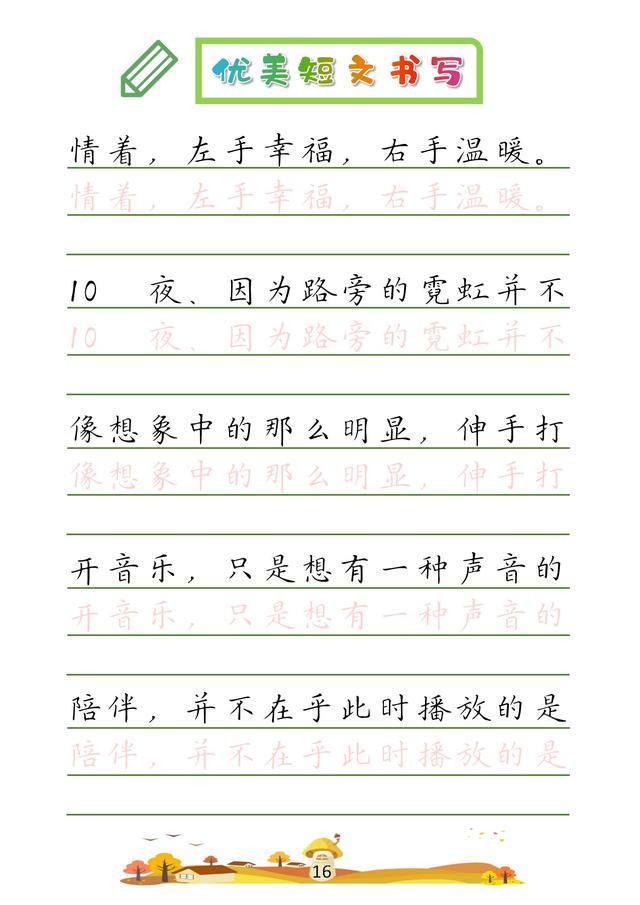 优美短文书写
情着，左手幸福，右手温暖。
情着，左手幸福，右手温暖。
10 夜、因为路旁的霓虹并不
10 夜、因为路旁的霓虹并不
像想象中的那么明显，伸手打
像想象中的那么明显，伸手打
开音乐，只是想有一种声音的
开音乐，只是想有一种声音的
陪伴，并不在乎此时播放的是
陪伴，并不在乎此时播放的是
16